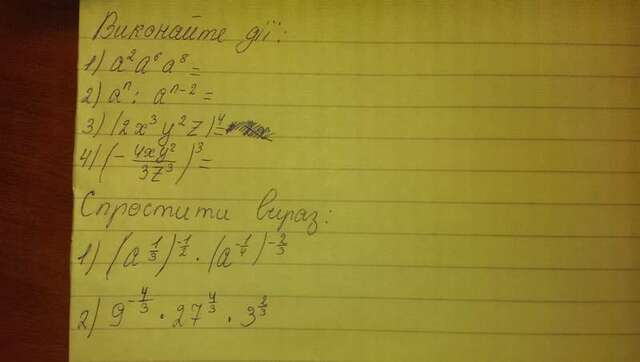 Виконайте дії:
1) a²a⁶a⁸=
2) aⁿ : aⁿ⁻²=
3) (2x³y²z)⁴=
4) (-4xy²/3z³)³=
Спростити вираз:
1) (a^{1/3})^{-1/2} · (a^{-1/4})^{-2/3}
2) 9^{-4/3} · 27^{4/3} · 3^{2/3}